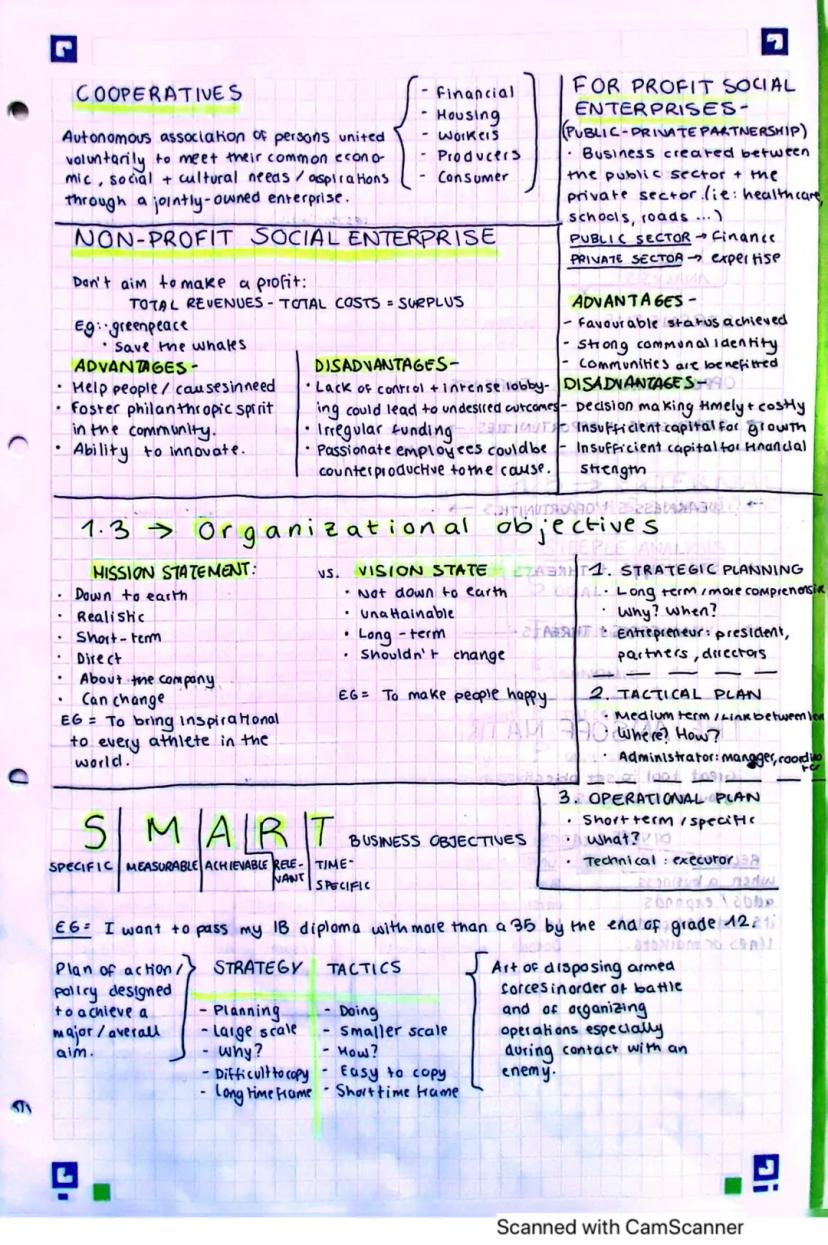 COOPERATIVES
Autonomous association of persons united
voluntarily to meet their common econo-
mic, social + cultural needs / aspirations
through a jointly-owned enterprise.
- Financial
- Housing
- Workers
- Producers
- Consumer
FOR PROFIT SOCIAL
ENTERPRISES-
(PUBLIC-PRIVATE PARTNERSHIP)
· Business created between
the public sector + the
private sector. (ie: healthcare,
schools, roads ...)
PUBLIC SECTOR → Finance
PRIVATE SECTOR → expertise
ADVANTAGES -
- Favourable status achieved
- Strong communal identity
- Communities are benefitted
DISADVANTAGES-
- Decision making timely + costly
- Insufficient capital for growth
- Insufficient capital for financial
strength
NON-PROFIT SOCIAL ENTERPRISE
Don't aim to make a profit:
TOTAL REVENUES - TOTAL COSTS = SURPLUS
Eg: · greenpeace
· Save the whales
ADVANTAGES -
· Help people / causes in need
· Foster philanthropic spirit
in the community.
· Ability to innovate.
DISADVANTAGES-
· Lack of control + intense lobby-
ing could lead to undesired outcomes
· Irregular funding
· Passionate employees could be
counterproductive to the cause.
1.3 → Organizational objectives
MISSION STATEMENT:
· Down to earth
· Realistic
· Short-term
· Direct
· About the company
· Can change
EG = To bring inspirational
to every athlete in the
world.
vs. VISION STATE
· Not down to earth
· Unattainable
· Long-term
· Shouldn't change
EG = To make people happy
1. STRATEGIC PLANNING
· Long term / more comprehensive
· Why? When?
· Entrepreneur: president,
partners, directors
2. TACTICAL PLAN
· Medium term / Link between
· Where? How?
· Administrator: manager,
3. OPERATIONAL PLAN
· Short term / specific
· What?
· Technical: executor
S M A R T BUSINESS OBJECTIVES
SPECIFIC MEASURABLE ACHIEVABLE RELE-
VANT TIME-
SPECIFIC
EG= I want to pass my IB diploma with more than a 35 by the end of grade 12.
Plan of action/
policy designed
to achieve a
major / overall
aim.
STRATEGY
- Planning
- Large scale
- Why?
- Difficult to copy
- Long time frame
TACTICS
- Doing
- Smaller scale
- How?
- Easy to copy
- Short time frame
Art of disposing armed
forces in order of battle
and of organizing
operations especially
during contact with an
enemy.
Scanned with CamScanner